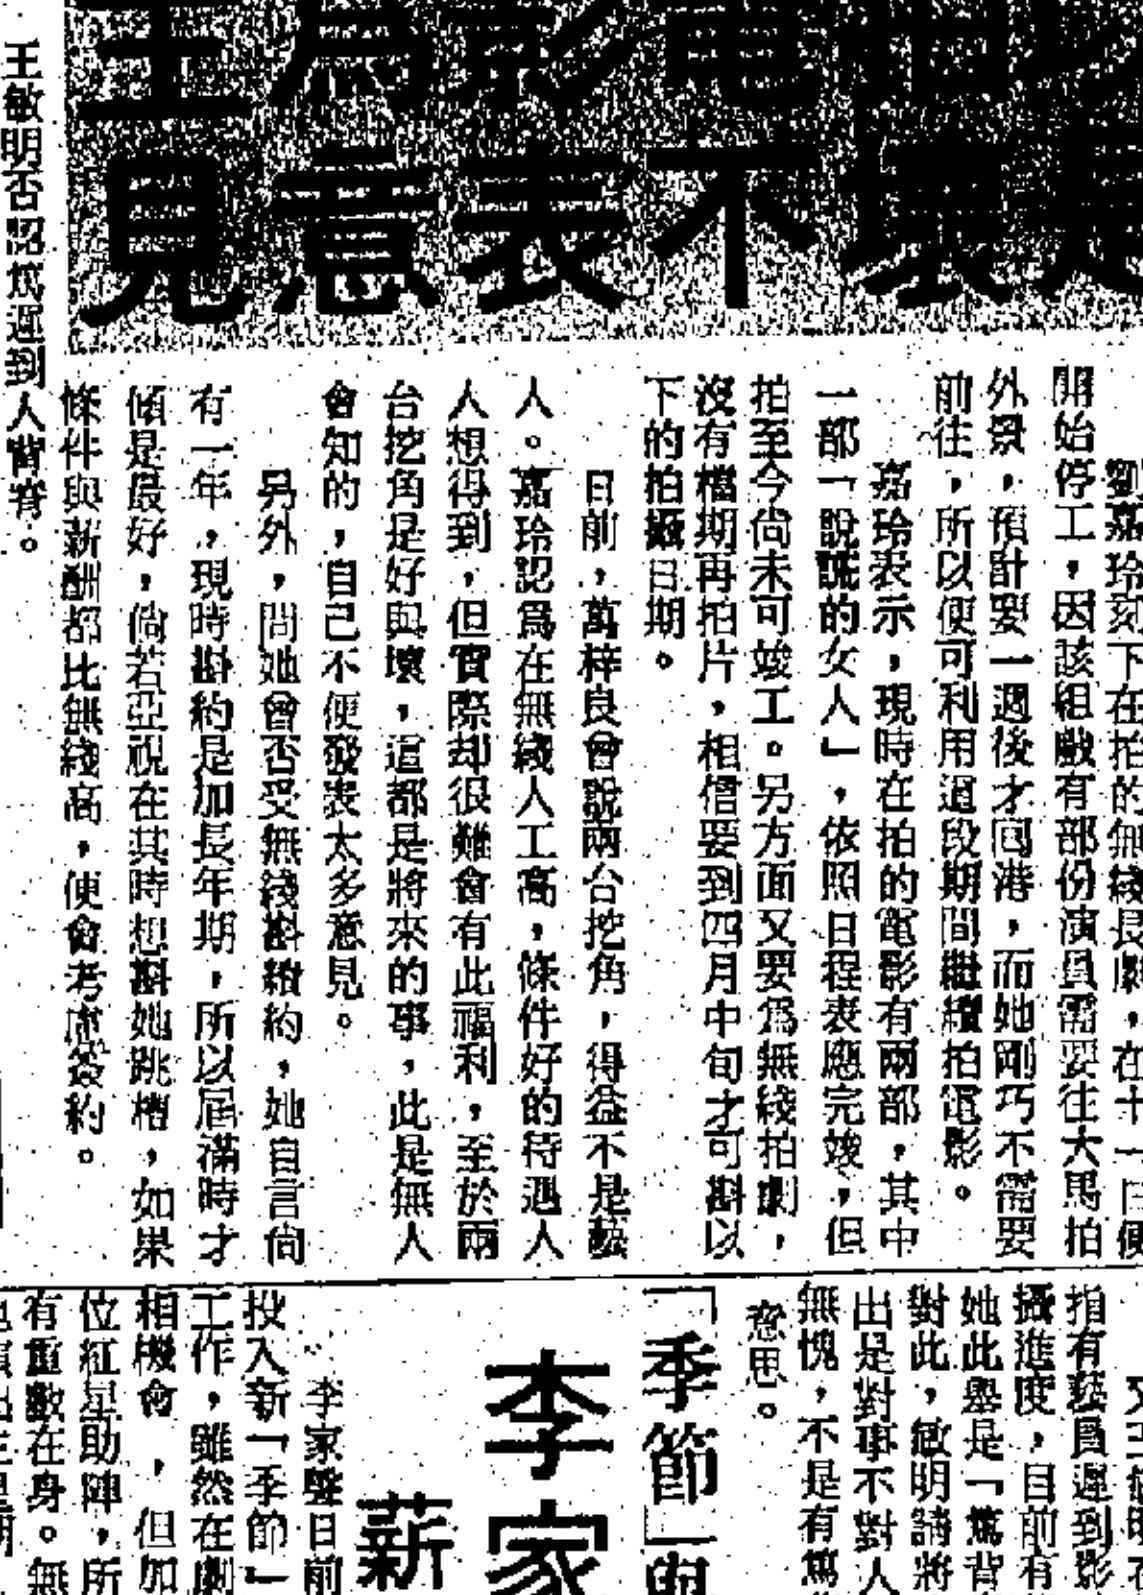 電影為王
是壞不表意見
劉嘉玲刻下在拍的無綫長劇，在十一日便
開始停工，因該組戲有部份演員需要往大馬拍
外景，預計要一週後才囘港，而她剛巧不需要
前往，所以便可利用過段期間繼續拍電影。
嘉玲表示，現時在拍的電影有兩部，其中
一部「說謊的女人」，依照日程表應完竣，但
拍至今尚未可竣工。另方面又要爲無綫拍劇，
沒有檔期再拍片，相信要到四月中旬才可斟以
下的拍攝日期。
日前，萬梓良曾說兩台挖角，得益不是藝
人。嘉玲認爲在無綫人工高，條件好的待遇人
人想得到，但實際却很難會有此福利，至於兩
台挖角是好與壞，這都是將來的事，此是無人
會知的，自己不便發表太多意見。
另外，問她曾否受無綫斟續約，她自言尙
有一年，現時斟約是加長年期，所以屆滿時才
傾是最好，倘若亞視在其時想斟她跳槽，如果
條件與薪酬都比無綫高，便會考慮簽約。
王敏明否認篤遲到人背脊。
指有藝員遲到影
攝進度，目前有
她此舉是「篤背
對此，敏明請將
出是對事不對人
無愧，不是有篤
意思。
「季節」與
李家
薪
李家聲日前
投入新「季節」
工作，雖然在劇
相機會，但加
位紅星助陣，所
有重數在身。無